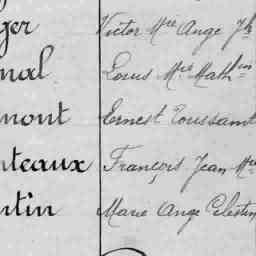 ger Victor Mie Ange Jh
nal Louis Mie Mathin
mont Ernest Toussaint
nteaux François Jean Mie
ntin Marie Ange Célestin